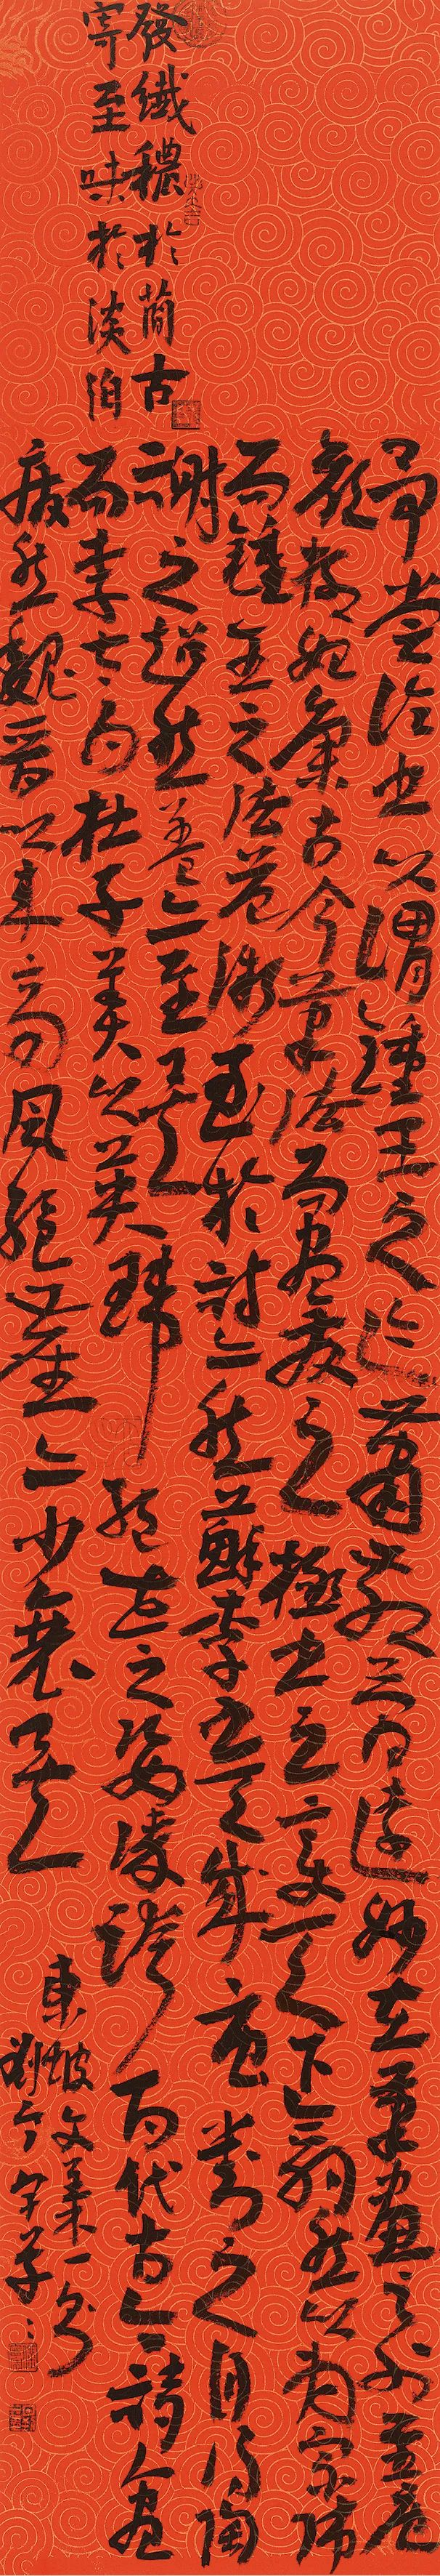 發纖穠於簡古
寄至味於淡泊
予嘗論書以謂鍾王之跡蕭散簡遠妙在筆畫之外至唐
顏柳始集古今筆法而盡發之極書之變天下翕然以為宗師
而鍾王之法益微至於詩亦然蘇李之天成曹劉之自得陶
謝之超然蓋亦至矣
而李太白杜子美以英瑋絕世之姿凌跨百代古今詩人盡
廢然魏晉以來高風絕塵亦少衰矣
東坡文集一
劉